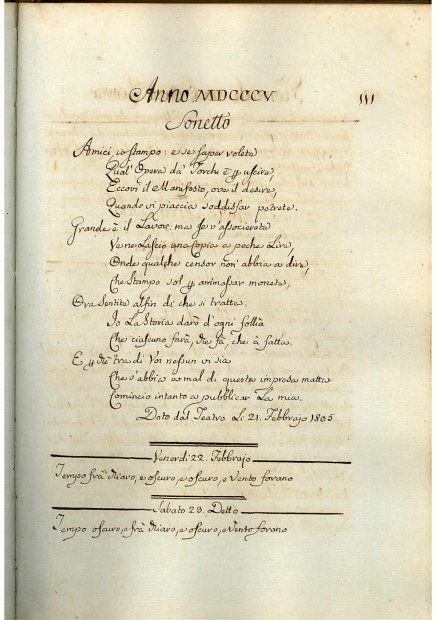 Anno MDCCCV.
111
Sonetto
Amici, io stampo: e se saper volete
Qual' Opera da' Torchi è p uscire,
Eccovi il Manifesto, ove il desire,
Quando vi piaccia soddisfar potrete.
Grande è il Lavor: ma se v'associerete
Ve ne Lascio una Copia a poche Lire,
Onde qualche censor non' abbia a dire,
Che Stampo sol p ammassar monete,
Ora Sentite alfin di che si tratta.
Io La Storia darò d'ogni follia
Che ciascuno farà, che fà, che à fatta.
E p chè tra di Voi nessun vi sia
Che s'abbia a mal di questa impresa matta
Comincio intanto a pubblicar La mia.
Dato dal Teatro Li 21. Febbrajo 1805
Venerdì 22. Febbrajo
Tempo frà chiaro, e oscuro, e oscuro, e Vento forano
Sabato 23. Detto
Tempo oscuro, e frà chiaro, e oscuro, e Vento forano